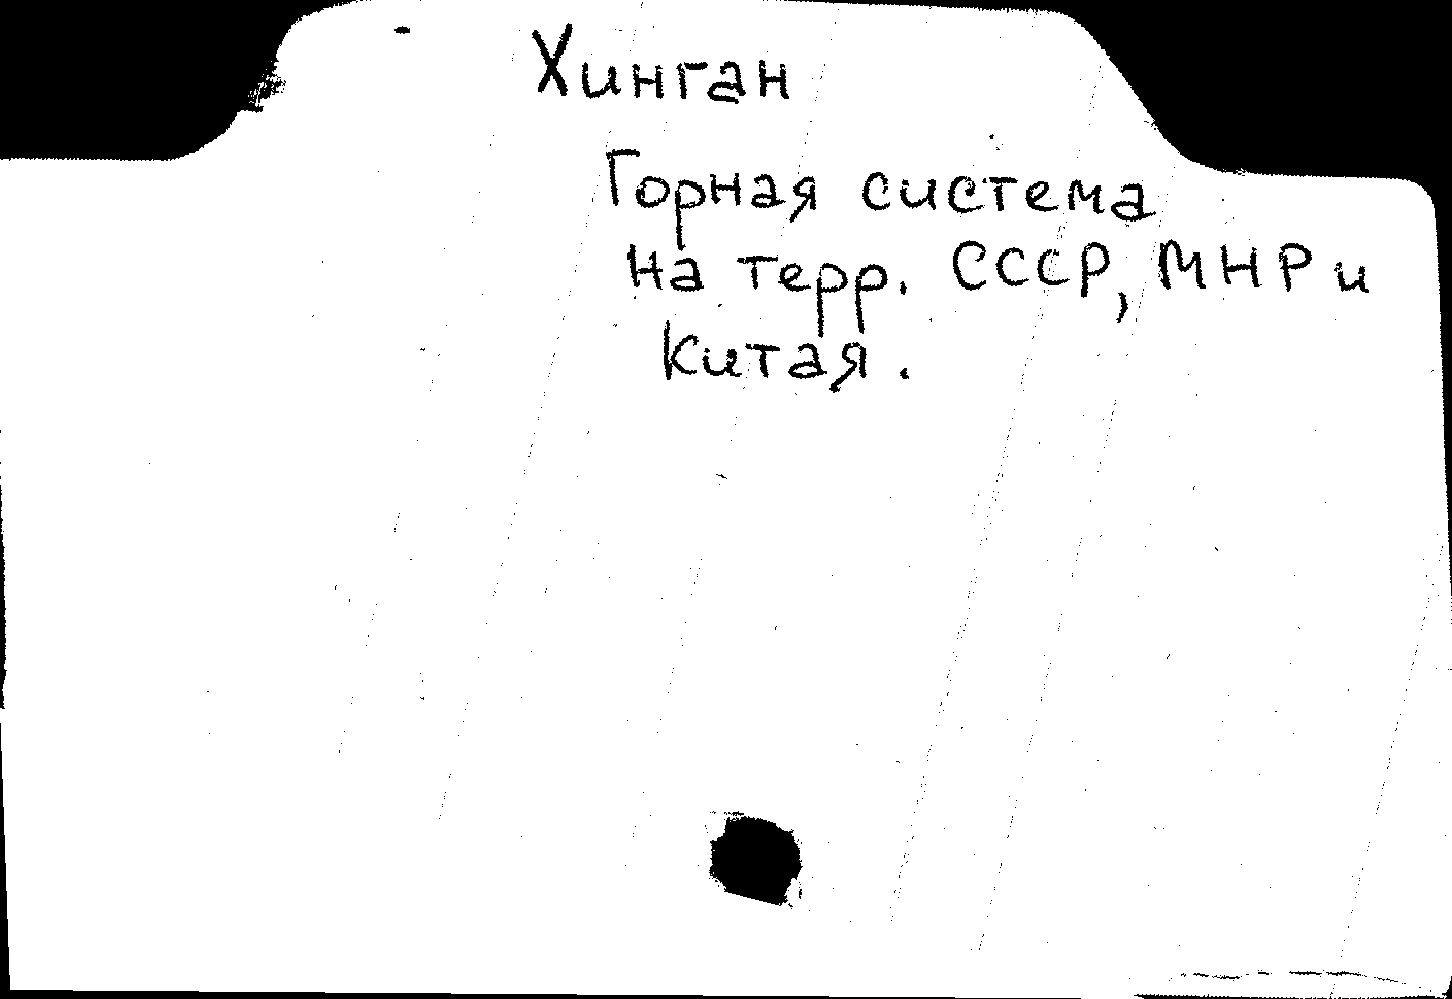 Хинган
Горная система
на терр. СССР, МНР и
Китая.